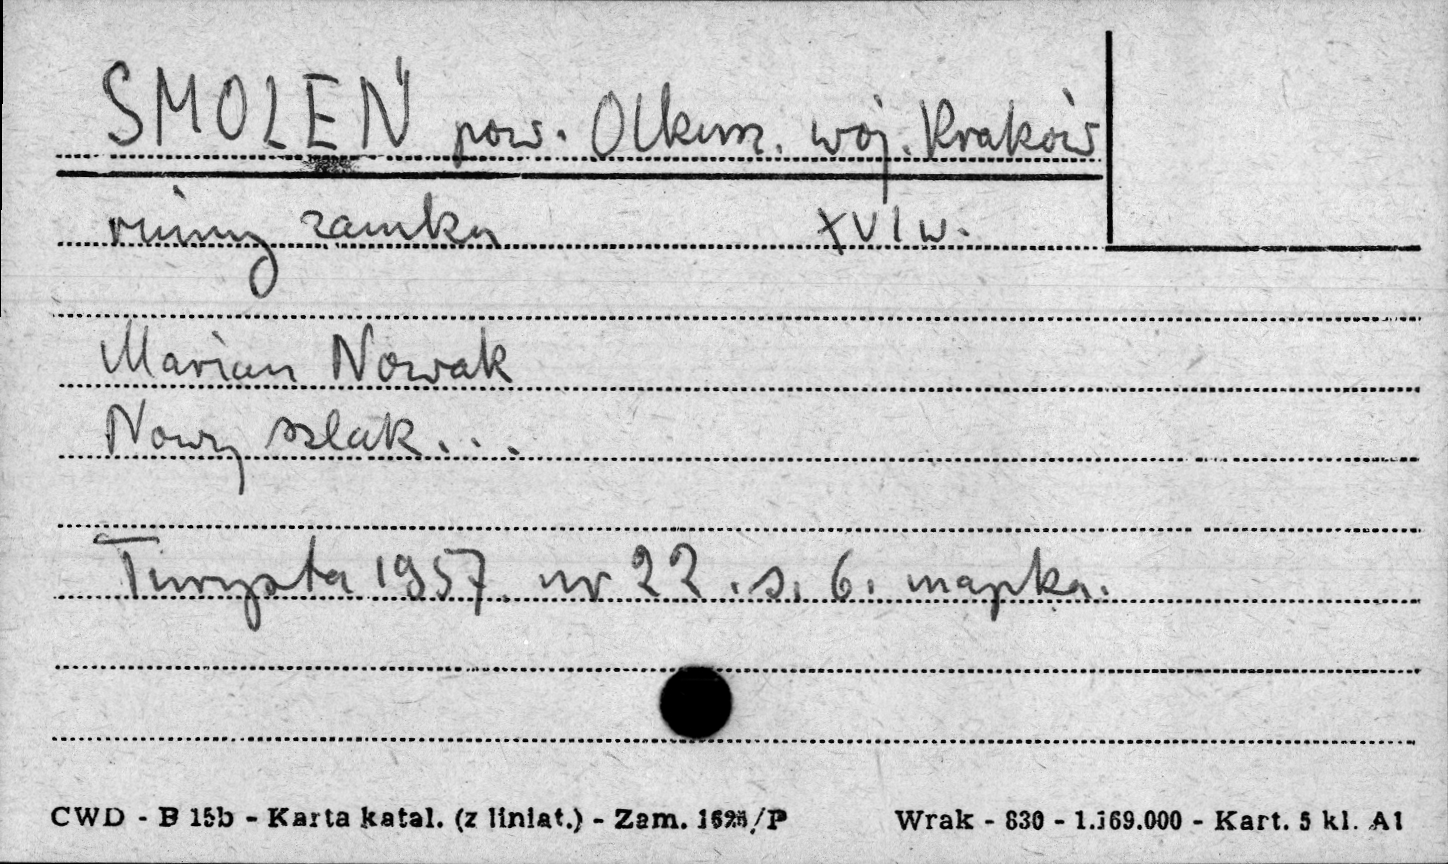 SMOLEŃ pow. Olkusz. woj. Kraków
ruiny zamku XVI w.
Marian Nowak
Nowy szlak...
Turysta 1957. nr 22. s. 6. mapka.
CWD - B 15b - Karta katal. (z liniat.) - Zam. /P Wrak - 830 - 1.169.000 - Kart. 5 kl. A1